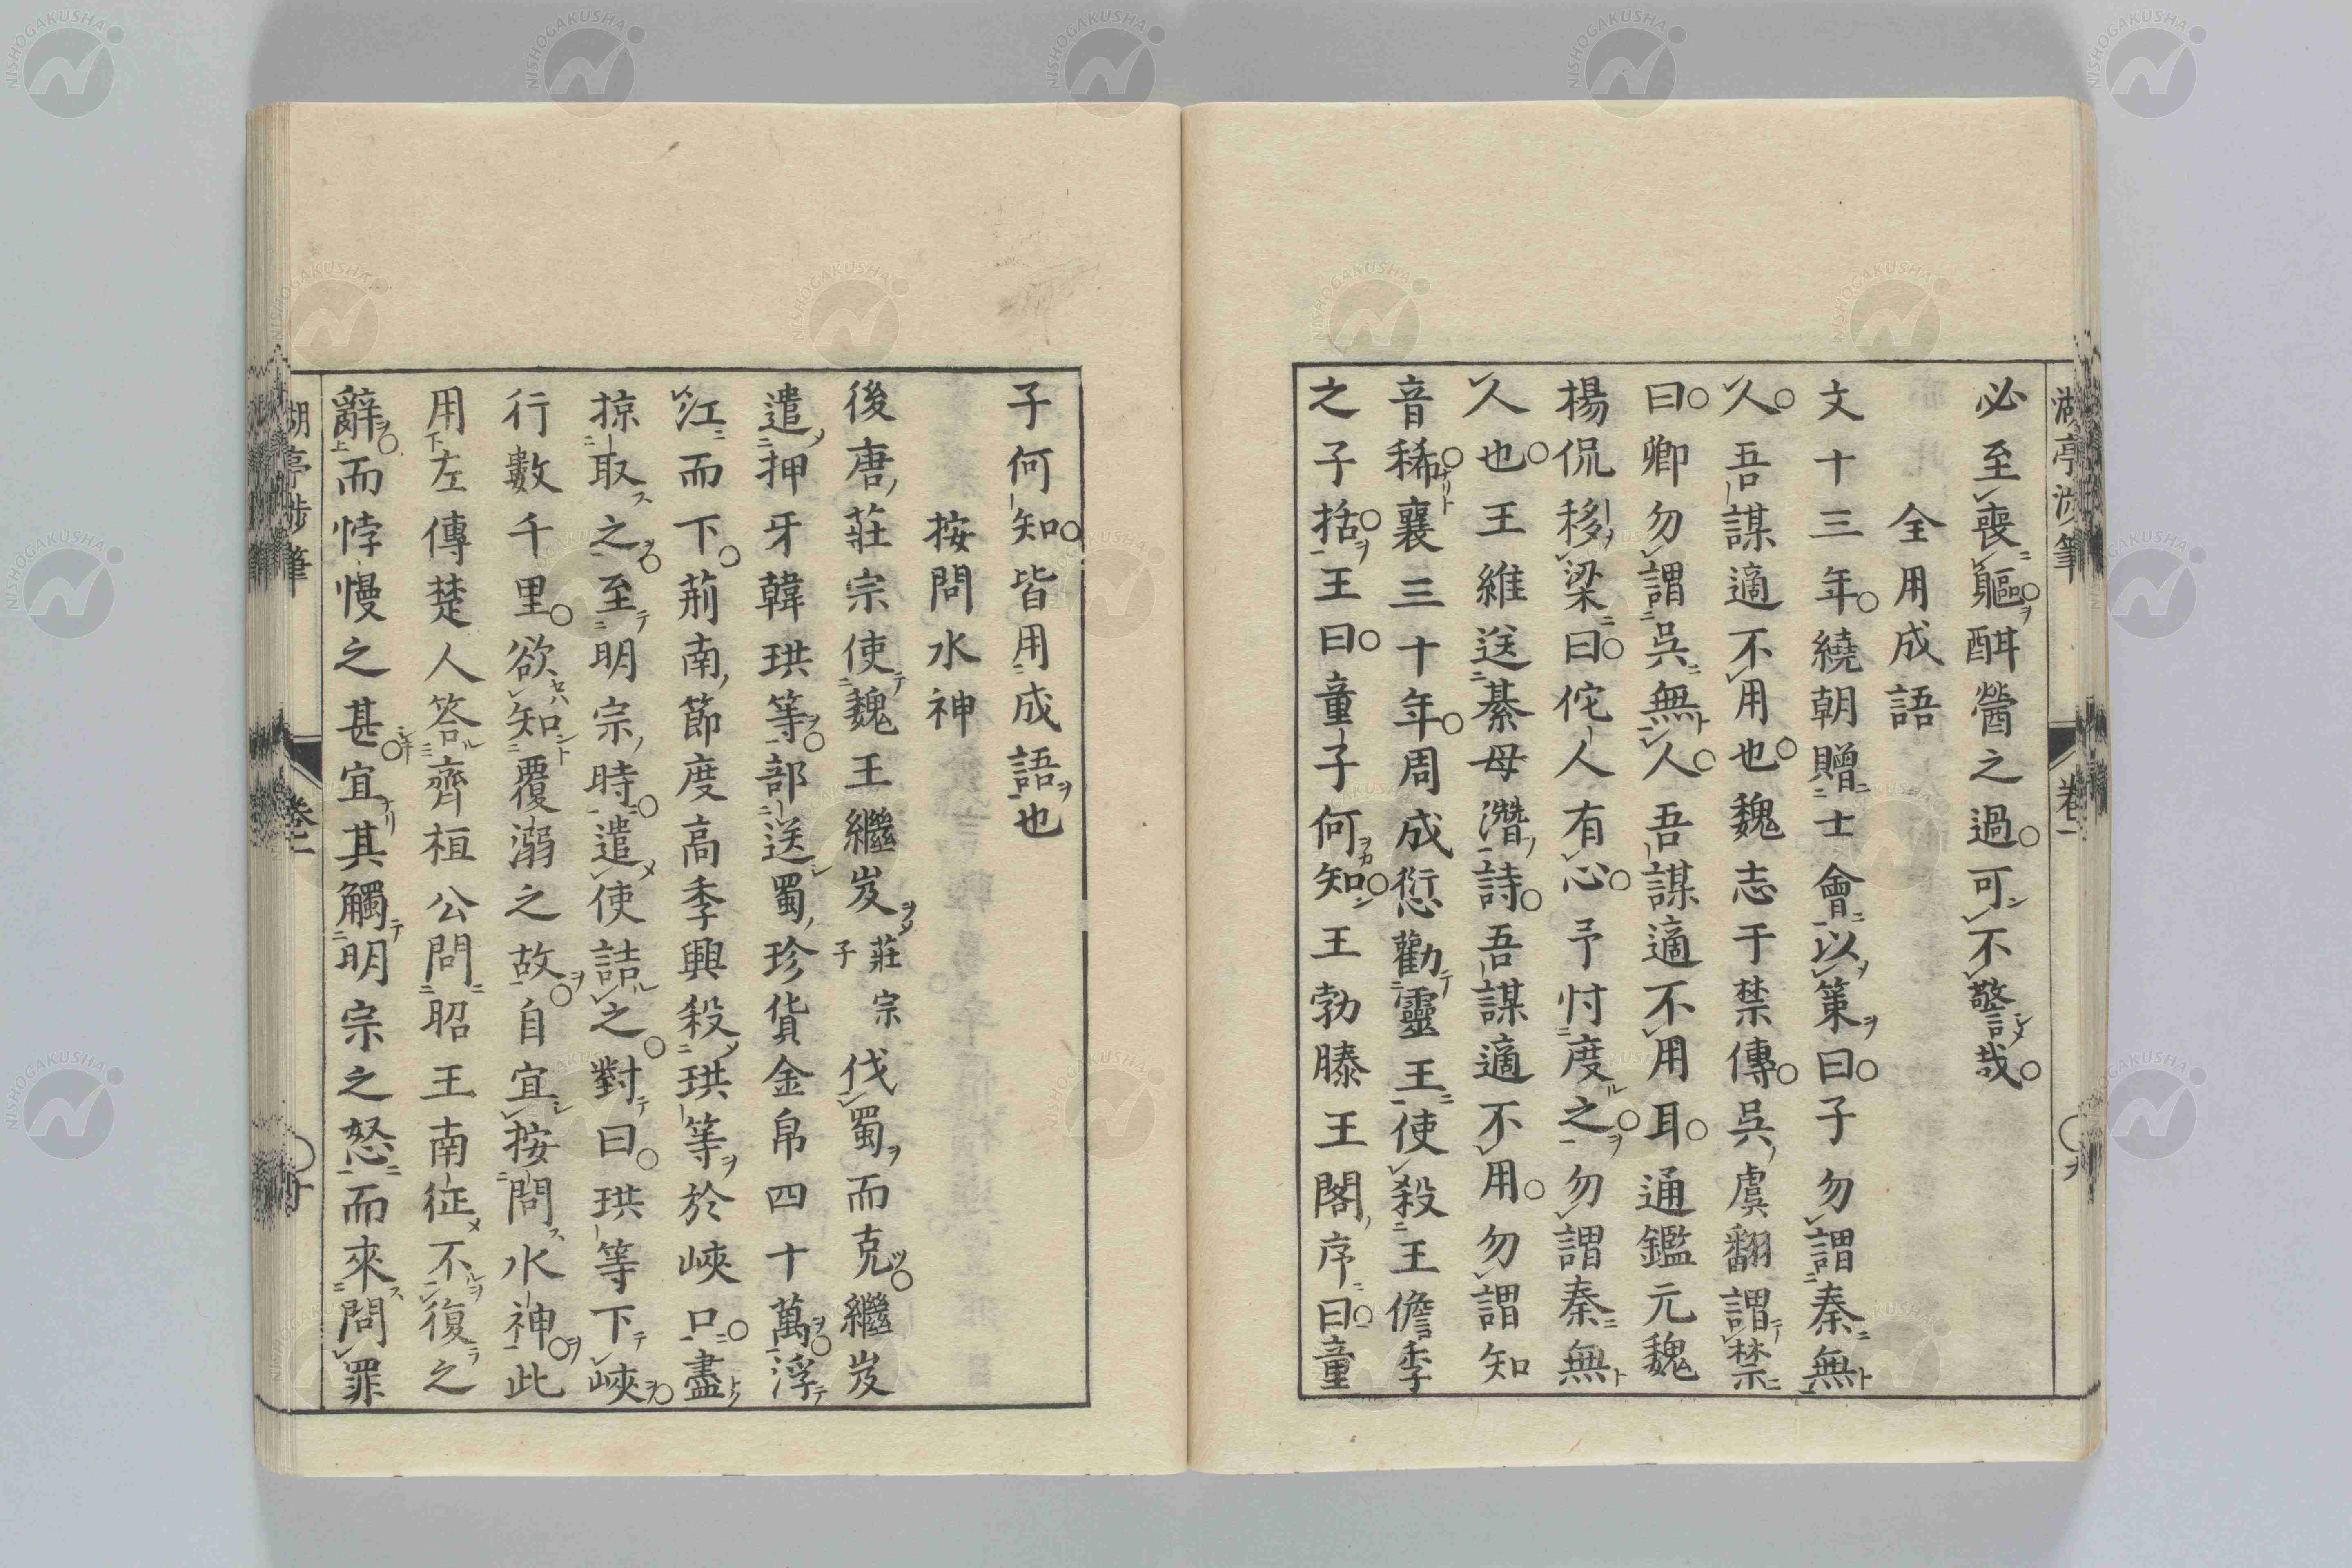 必至喪軀酗醟之過可不警哉
全用成語
文十三年繞朝贈士會以策曰子勿謂秦無
人吾謀適不用也魏志于禁傳吳虞翻謂禁
曰卿勿謂吳無人吾謀適不用耳通鑑元魏
楊侃移梁曰佗人有心予忖度之勿謂秦無
人也王維送綦母潛詩吾謀適不用勿謂知
音稀襄三十年周成愆勸靈王使殺王儋季
之子括王曰童子何知王勃滕王閣序曰童
子何知皆用成語也
按問水神
後唐莊宗使魏王繼岌莊宗子伐蜀而克繼岌
遣押牙韓珙等部送蜀珍貨金帛四十萬浮
江而下荊南節度高季興殺珙等於峽口盡
掠取之至明宗時遣使詰之對曰珙等下峽
行數千里欲知覆溺之故自宜按問水神此
用左傳楚人答齊桓公問昭王南征不復之
辭而悖慢之甚宜其觸明宗之怒而來問罪
湖亭涉筆
卷一
湖亭涉筆
卷一
十
NISHOGAKUSHA